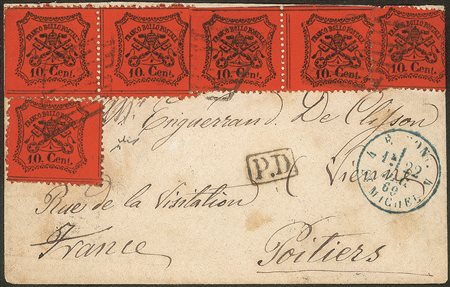 FRANCO BOLLO POSTALE FRANCO BOLLO POSTALE FRANCO BOLLO POSTALE FRANCO BOLLO POSTALE FRANCO BOLLO POSTALE
10 Cent. 10 Cent. 10 Cent. 10 Cent. 10 Cent.
FRANCO BOLLO POSTALE
10 Cent.
Enguerrand De Clisson
P.D.
Vienne
69
MICHEL
Rue de la Visitation
France
Poitiers